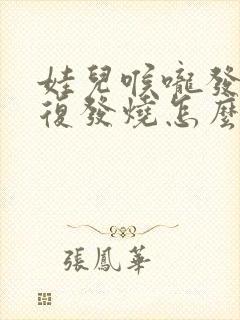 娃兒喉嚨發
復發燒怎麼
張鳳華